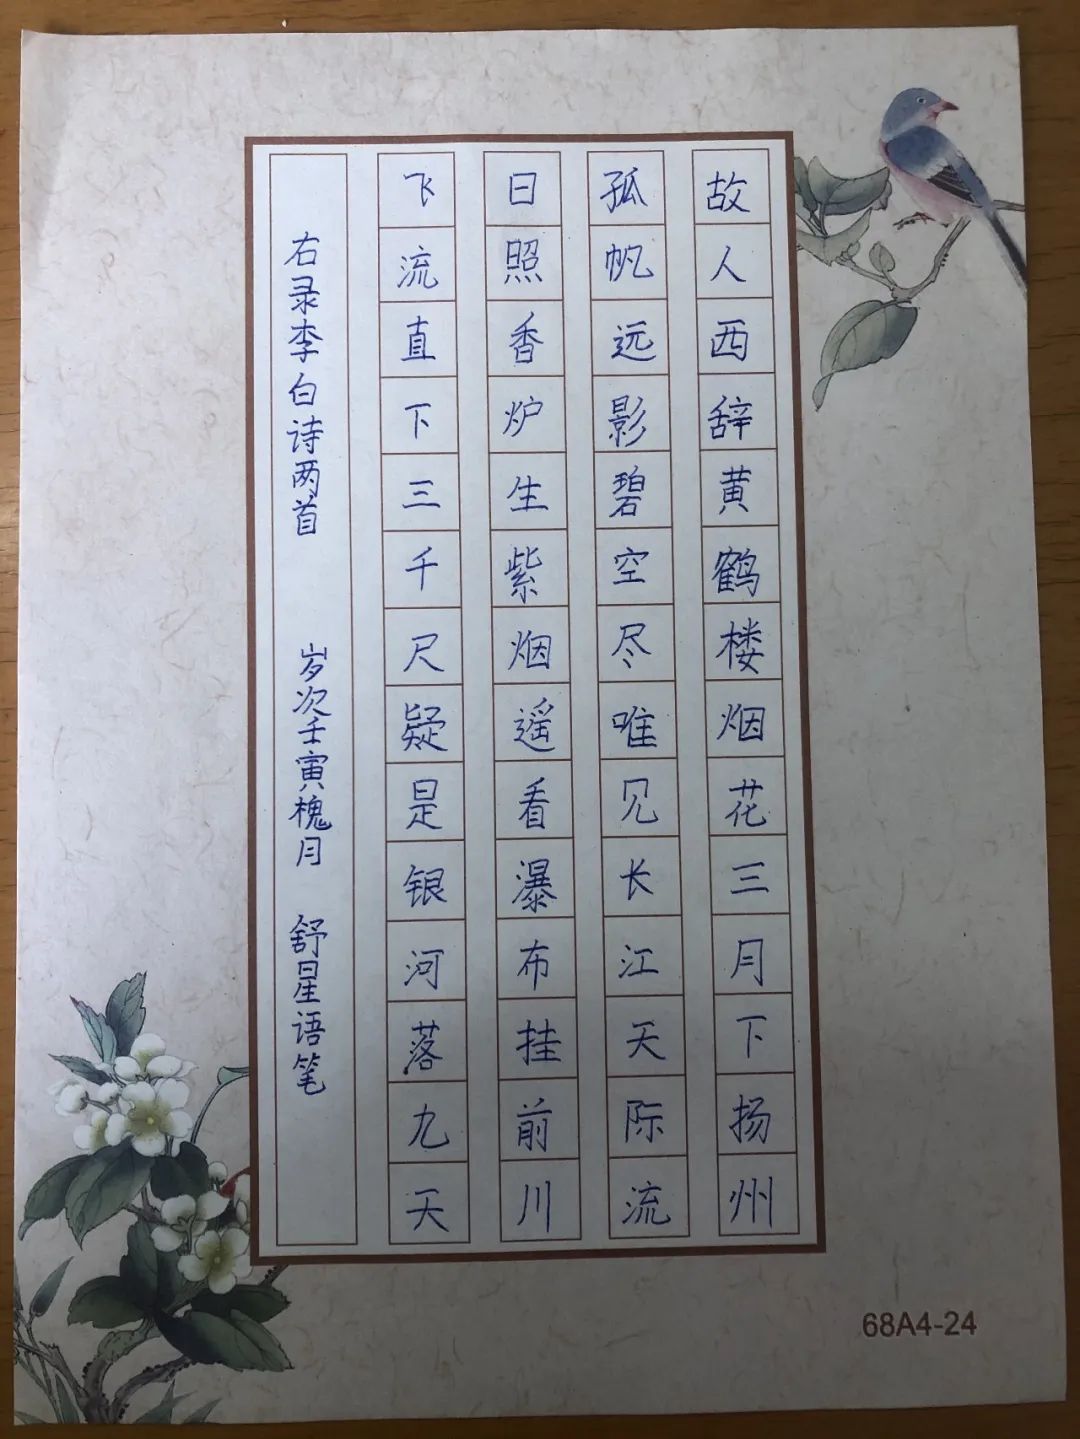 故人西辞黄鹤楼烟花三月下扬州
孤帆远影碧空尽唯见长江天际流
日照香炉生紫烟遥看瀑布挂前川
飞流直下三千尺疑是银河落九天
右录李白诗两首 岁次壬寅槐月 舒星语笔
68A4-24